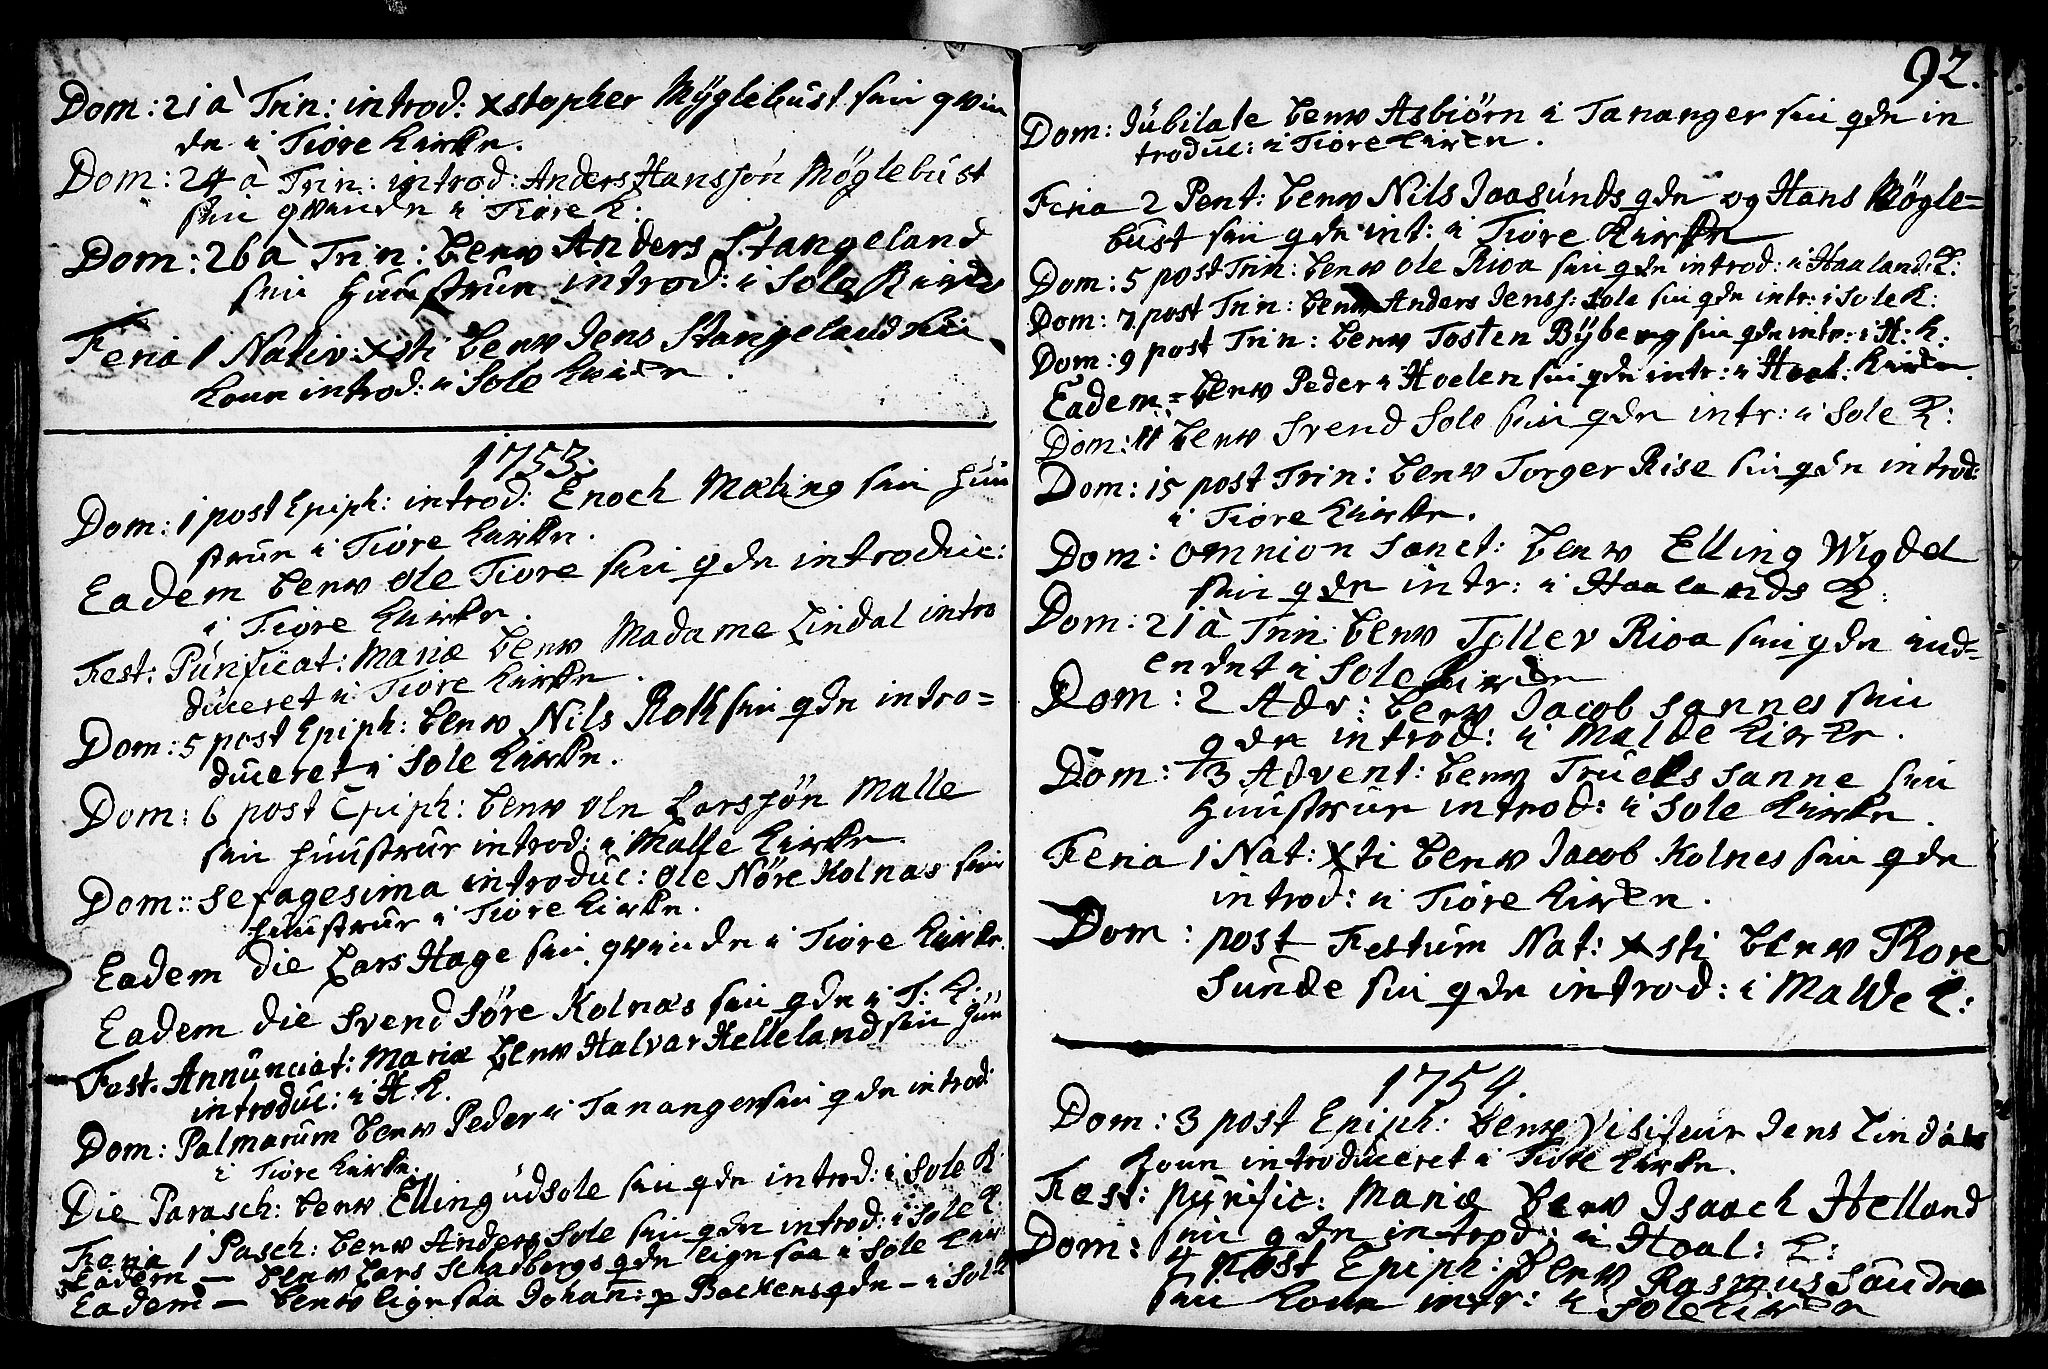 Dom: 21 à Trin: introd: Xstopher Möglebust sin qvin
de i Tiore Kirke.
Dom: 24 à Trin: introd: Anders Hanssön Möglebust
sin qvinde i Tiore K:
Dom: 26 à Trin: blew Anders Stangeland
sin Huustrue introd: i Sole Kirke
Feria 1 Nativ: Xsti blew Jens Stangeland sin
Kone introd: i Sole Kirke.
1753.
Dom: 1 post Epiph: introd: Enoch Mæling sin Huu
strue i Tiore Kirke.
Eadem blew Ole Tiore sin qde introduc:
i Tiore Kirke.
Fest: Purificat: Mariæ blew Madame Lindal intro
duceret i Tiore Kirke.
Dom: 5 post Epiph: blew Nils Roth sin qde intro=
duceret i Sole Kirke.
Dom: 6 post Epiph: blew Ole Larssön Malle
sin Huustrue introd: i Malle Kirke
Dom: Sexagesima introduc: Ole Nöre Kolnæs sin
Huustrue i Tiore Kirke.
Eadem die Lars Hage sin qvinde i Tiore Kirke.
Eadem die Svend Söre Kolnæs sin qde i T: K:
Fest. Annunciat: Mariæ blew Halvar Helleland sin Huu
introduc: i H. K.
Dom: Palmarum blew Peder i Tananger sin qde introd:
i Tiore Kirke.
Die Parasch: blew Elling Udsole sin qde introd: i Sole K:
Feria 1 Pasch: blew Anders Sole sin qde introd: i Sole K:
Eadem — blew Lars Schadbergs qde ligesaa i Sole Kir
Eadem — blew ligesaa Johan: p Backens qde — i Sol K
92.
Dom: Jubilate blew Asbiörn i Tananger sin qde in
troduc: i Tiore Kirke.
Feria 2 Pent: blew Nils Jaasunds qde og Hans Mögle=
bust sin qde int: i Tiore Kirke
Dom: 5 post Trin: blew Ole Risa sin qde introd: i Haaland: K:
Dom: 7 post Trin: blew Anders Jenss: Sole sin qde intr: i Sole K:
Dom: 9 post Trin: blew Tosten Byberg sin qde intr: i H: K:
Eadem = blew Peder i Hoelen sin qde intr: i Haal: Kirke.
Dom: 11 blew Svend Sole sin qde intr: i Sole K:
Dom: 15 post Trin: blew Torger Rise sin qde introd:
i Tiore Kirke.
Dom: Omnion Sanct: blew Elling Wigdel
sin qde intr: i Haalands K:
Dom: 21 à Trin: blew Toller Risa sin qde ind=
ledet i Sole Kirke
Dom: 2 Adv: blew Jacob Sannes sin
qde introd: i Malde Kirke.
Dom: 3 Advent: blew Truels Sanne sin
Huustrue introd: i Sole Kirke.
Feria 1 Nat: Xti blew Jacob Kolnes sin qde
introd: i Tiore Kirke.
Dom: post Festum Nat: Xsti blew Thore
Sunde sin qde introd: i Malde K:
1754.
Dom: 3 post Epiph: blew Visiteur Jens Lindals
Kone introduceret i Tiore Kirke.
Fest: Purific: Mariæ blew Isaach Helland
sin qde introd: i Haal: K:
Dom: 4 post Epiph: blew Rasmus
sin Kone intr: i Sole Kirke